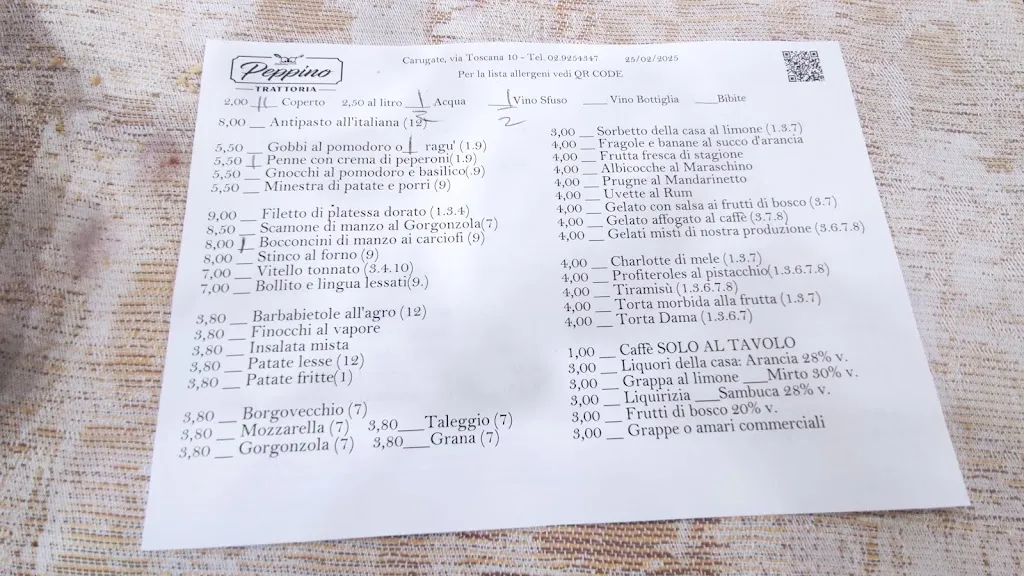 Peppino
TRATTORIA
Carugate, via Toscana 10 - Tel. 02.9254347 25/02/2025
Per la lista allergeni vedi QR CODE
2,00 II Coperto 2,50 al litro 1/2 Acqua 1/2 Vino Sfuso ___ Vino Bottiglia ___ Bibite
8,00 __ Antipasto all'italiana (12)
5,50 __ Gobbi al pomodoro o I ragu' (1.9)
5,50 I Penne con crema di peperoni(1.9)
5,50 __ Gnocchi al pomodoro e basilico(.9)
5,50 __ Minestra di patate e porri (9)
9,00 __ Filetto di platessa dorato (1.3.4)
8,50 __ Scamone di manzo al Gorgonzola(7)
8,00 I Bocconcini di manzo ai carciofi (9)
8,00 __ Stinco al forno (9)
7,00 __ Vitello tonnato (3.4.10)
7,00 __ Bollito e lingua lessati(9.)
3,80 __ Barbabietole all'agro (12)
3,80 __ Finocchi al vapore
3,80 __ Insalata mista
3,80 __ Patate lesse (12)
3,80 __ Patate fritte(1)
3,80 __ Borgovecchio (7)
3,80 __ Mozzarella (7) 3,80___Taleggio (7)
3,80 __ Gorgonzola (7) 3,80___Grana (7)
3,00 __ Sorbetto della casa al limone (1.3.7)
4,00 __ Fragole e banane al succo d'arancia
4,00 __ Frutta fresca di stagione
4,00 __ Albicocche al Maraschino
4,00 __ Prugne al Mandarinetto
4,00 __ Uvette al Rum
4,00 __ Gelato con salsa ai frutti di bosco (3.7)
4,00 __ Gelato affogato al caffè (3.7.8)
4,00 __ Gelati misti di nostra produzione (3.6.7.8)
4,00 __ Charlotte di mele (1.3.7)
4,00 __ Profiteroles al pistacchio(1.3.6.7.8)
4,00 __ Tiramisù (1.3.6.7.8)
4,00 __ Torta morbida alla frutta (1.3.7)
4,00 __ Torta Dama (1.3.6.7)
1,00 __ Caffè SOLO AL TAVOLO
3,00 __ Liquori della casa: Arancia 28% v.
3,00 __ Grappa al limone ___Mirto 30% v.
3,00 __ Liquirizia ___Sambuca 28% v.
3,00 __ Frutti di bosco 20% v.
3,00 __ Grappe o amari commerciali